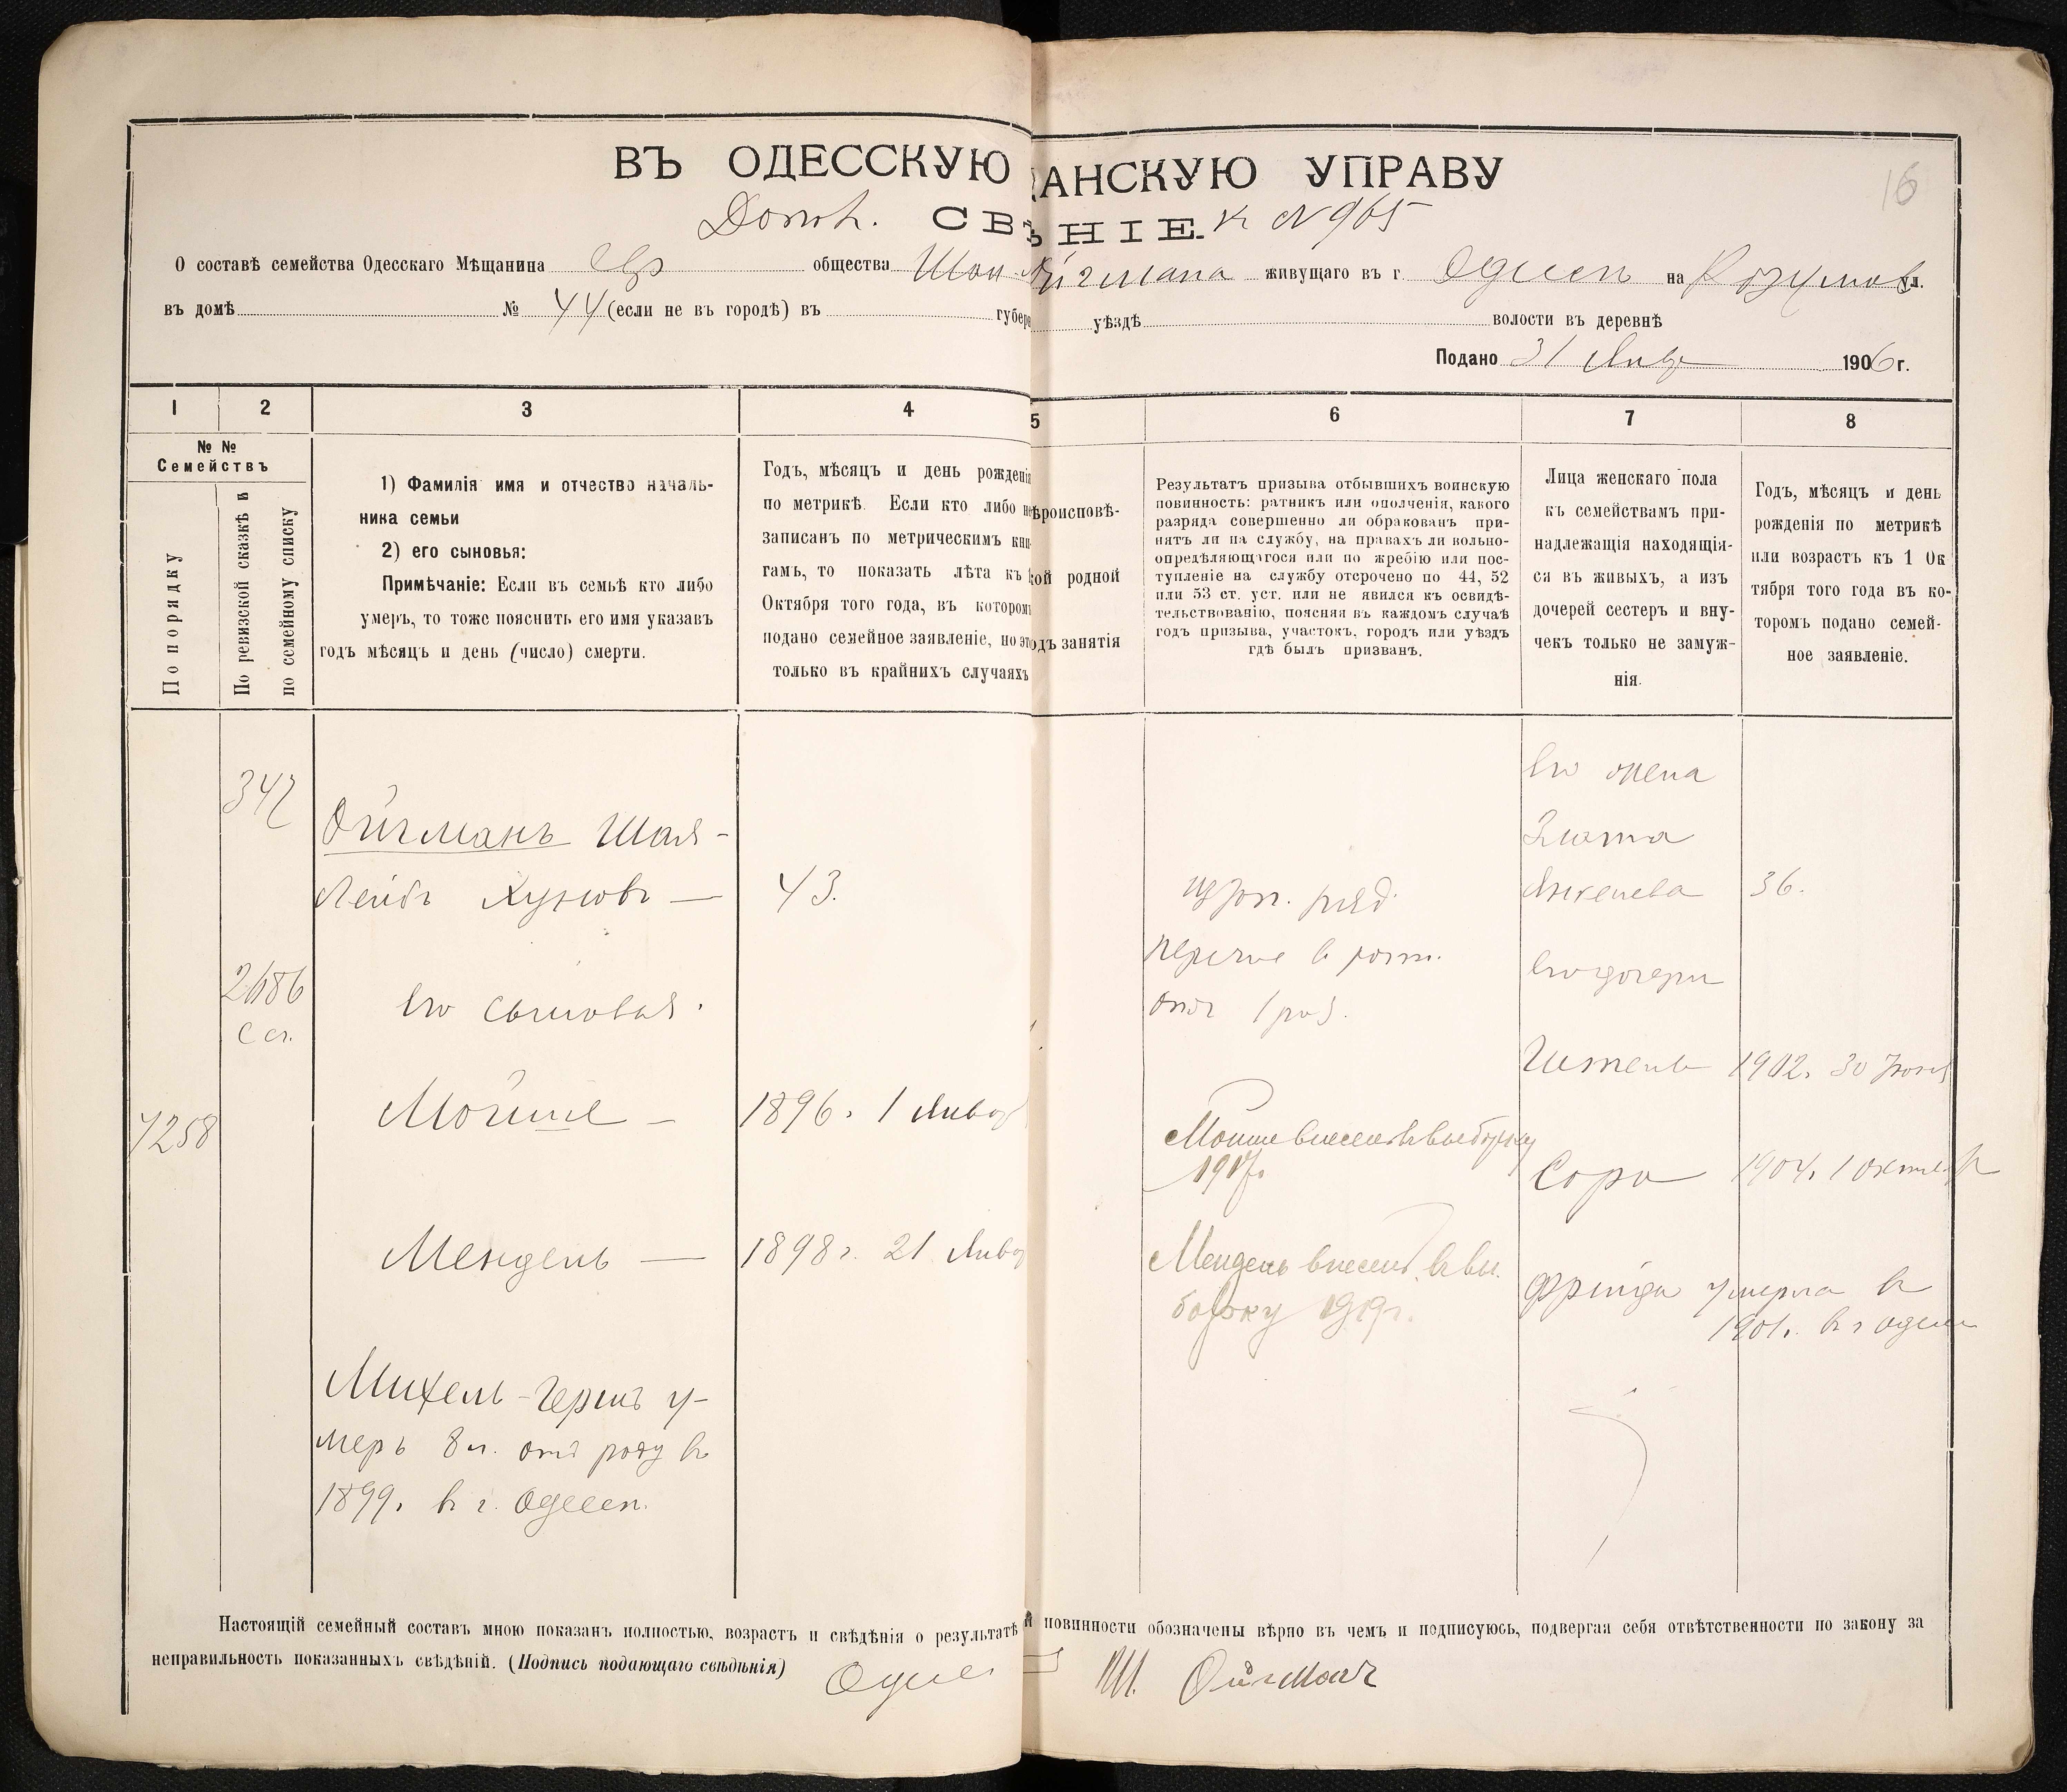 16
ВЪ ОДЕССКУЮ АНСКУЮ УПРАВУ
СВѢНІЕ. к № 965
О составѣ семейства Одесскаго Мѣщанина Евр общества живущаго въ г. Одессѣ на ул.
въ домѣ № 44 (если не въ городѣ) въ губерн уѣздѣ волости въ деревнѣ
Подано 31 Янв 1906 г.
1 2 3 4 5 6 7 8
№ №
Семействъ
По порядку
По ревизской сказкѣ и
по семейному списку
1) Фамилія имя и отчество началь-
ника семьи
2) его сыновья:
Примѣчаніе: Если въ семьѣ кто либо
умеръ, то тоже пояснить его имя указавъ
годъ мѣсяцъ и день (число) смерти.
Годъ, мѣсяцъ и день рожденія
по метрикѣ. Если кто либо не
записанъ по метрическимъ кни-
гамъ, то показать лѣта къ 1
Октября того года, въ котором
подано семейное заявленіе, но это
только въ крайнихъ случаяхъ
ѣроисповѣ-
кой родной
одъ занятія
Результатъ призыва отбывшихъ воинскую
повинность: ратникъ или ополченія, какого
разряда совершенно ли обракованъ при-
нятъ ли на службу, на правахъ ли вольно-
опредѣляющагося или по жребію или пос-
тупленіе на службу отсрочено по 44, 52
или 53 ст. уст. или не явился къ освидѣ-
тельствованію, поясняя въ каждомъ случаѣ
годъ призыва, участокъ, городъ или уѣздъ
гдѣ былъ призванъ.
Лица женскаго пола
къ семействамъ при-
надлежащія находящія-
ся въ живыхъ, а изъ
дочерей сестеръ и вну-
чекъ только не замуж-
нія.
Годъ, мѣсяцъ и день
рожденія по метрикѣ
или возрастъ къ 1 Ок
тября того года въ ко-
торомъ подано семей-
ное заявленіе.
342
Ойгманъ Шая-
Лейбъ — 43.
2686
Его сыновья.
7258
Мойше — 1896. 1 Январ
Мендель — 1898 г. 21 Январ
Михель-Гершъ у-
меръ 8 л. отъ роду въ
1899. въ г. Одессѣ.
запас. ряд.
1 раз.
Мойше внесенъ въ выборку
1917г.
Мендель внесенъ въ вы.
борку 1919г.
Его жена
Злота
Янкелева 36.
Его дочери
Гитель 1902. 30 Іюня
Сора 1904. 1 Октября
Фрейда умерла въ
1901г. въ г Одессѣ
Настоящій семейный составъ мною показанъ полностью, возрастъ и свѣдѣнія о результатѣ й повинности обозначены вѣрно въ чемъ и подписуюсь, подвергая себя отвѣтственности по закону за
неправильность показанныхъ свѣдѣній. (Подпись подающаго свѣдѣнія)
Ш. Ойгман